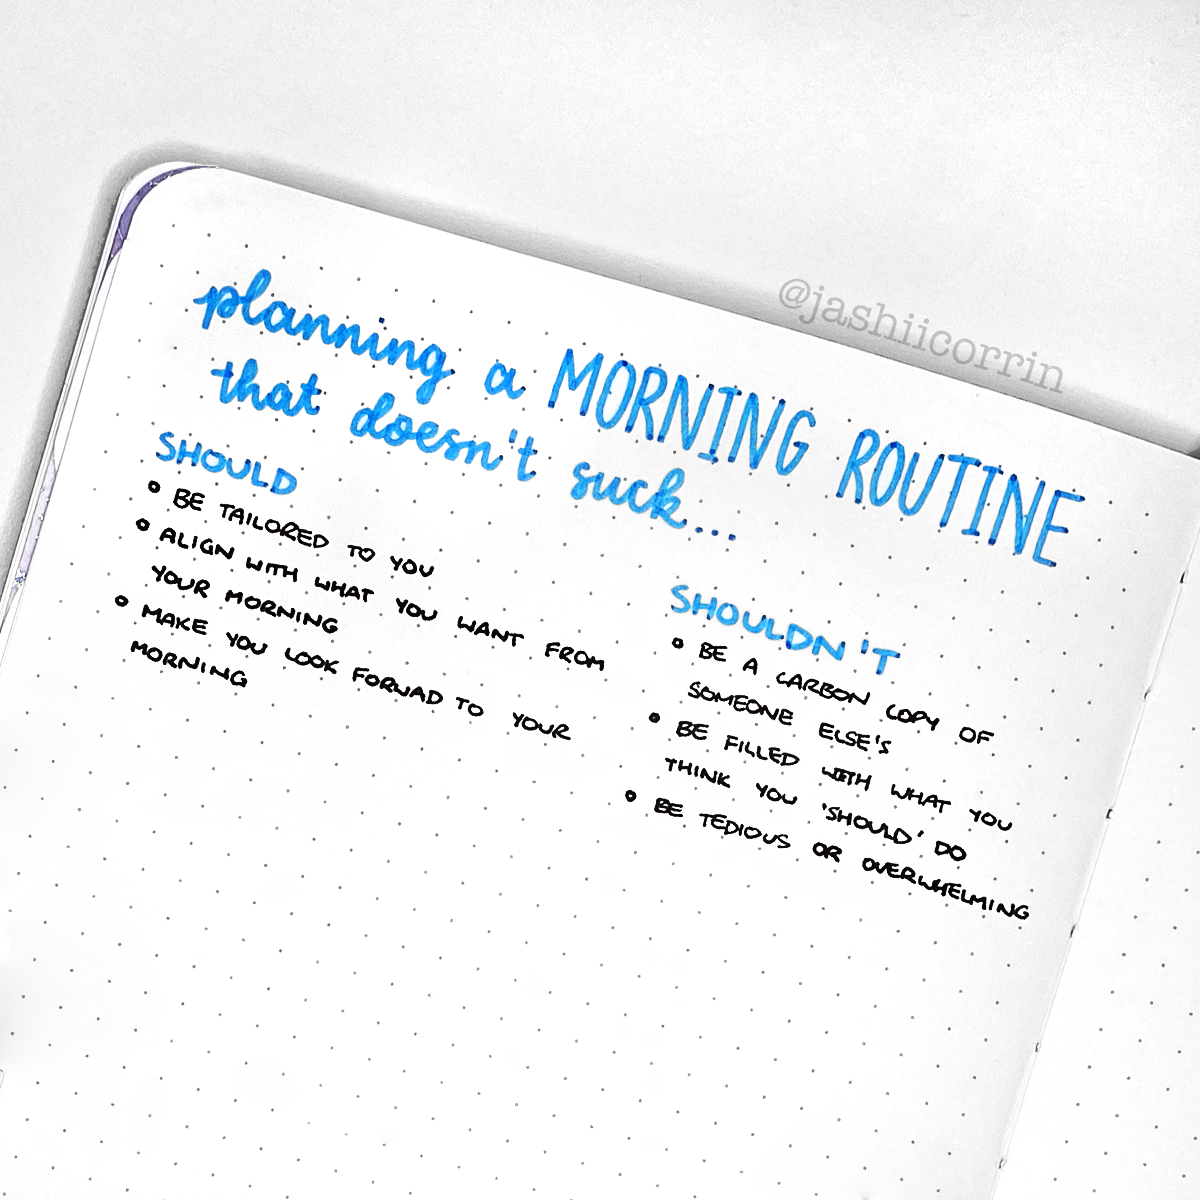 @jashiicorrin
planning a MORNING ROUTINE
that doesn't suck...
SHOULD
BE TAILORED TO YOU
ALIGN WITH WHAT YOU WANT FROM
YOUR MORNING
MAKE YOU LOOK FORWAD TO YOUR
MORNING
SHOULDN'T
BE A CARBON COPY OF
SOMEONE ELSE'S
BE FILLED WITH WHAT YOU
THINK YOU 'SHOULD' DO
BE TEDIOUS OR OVERWHELMING